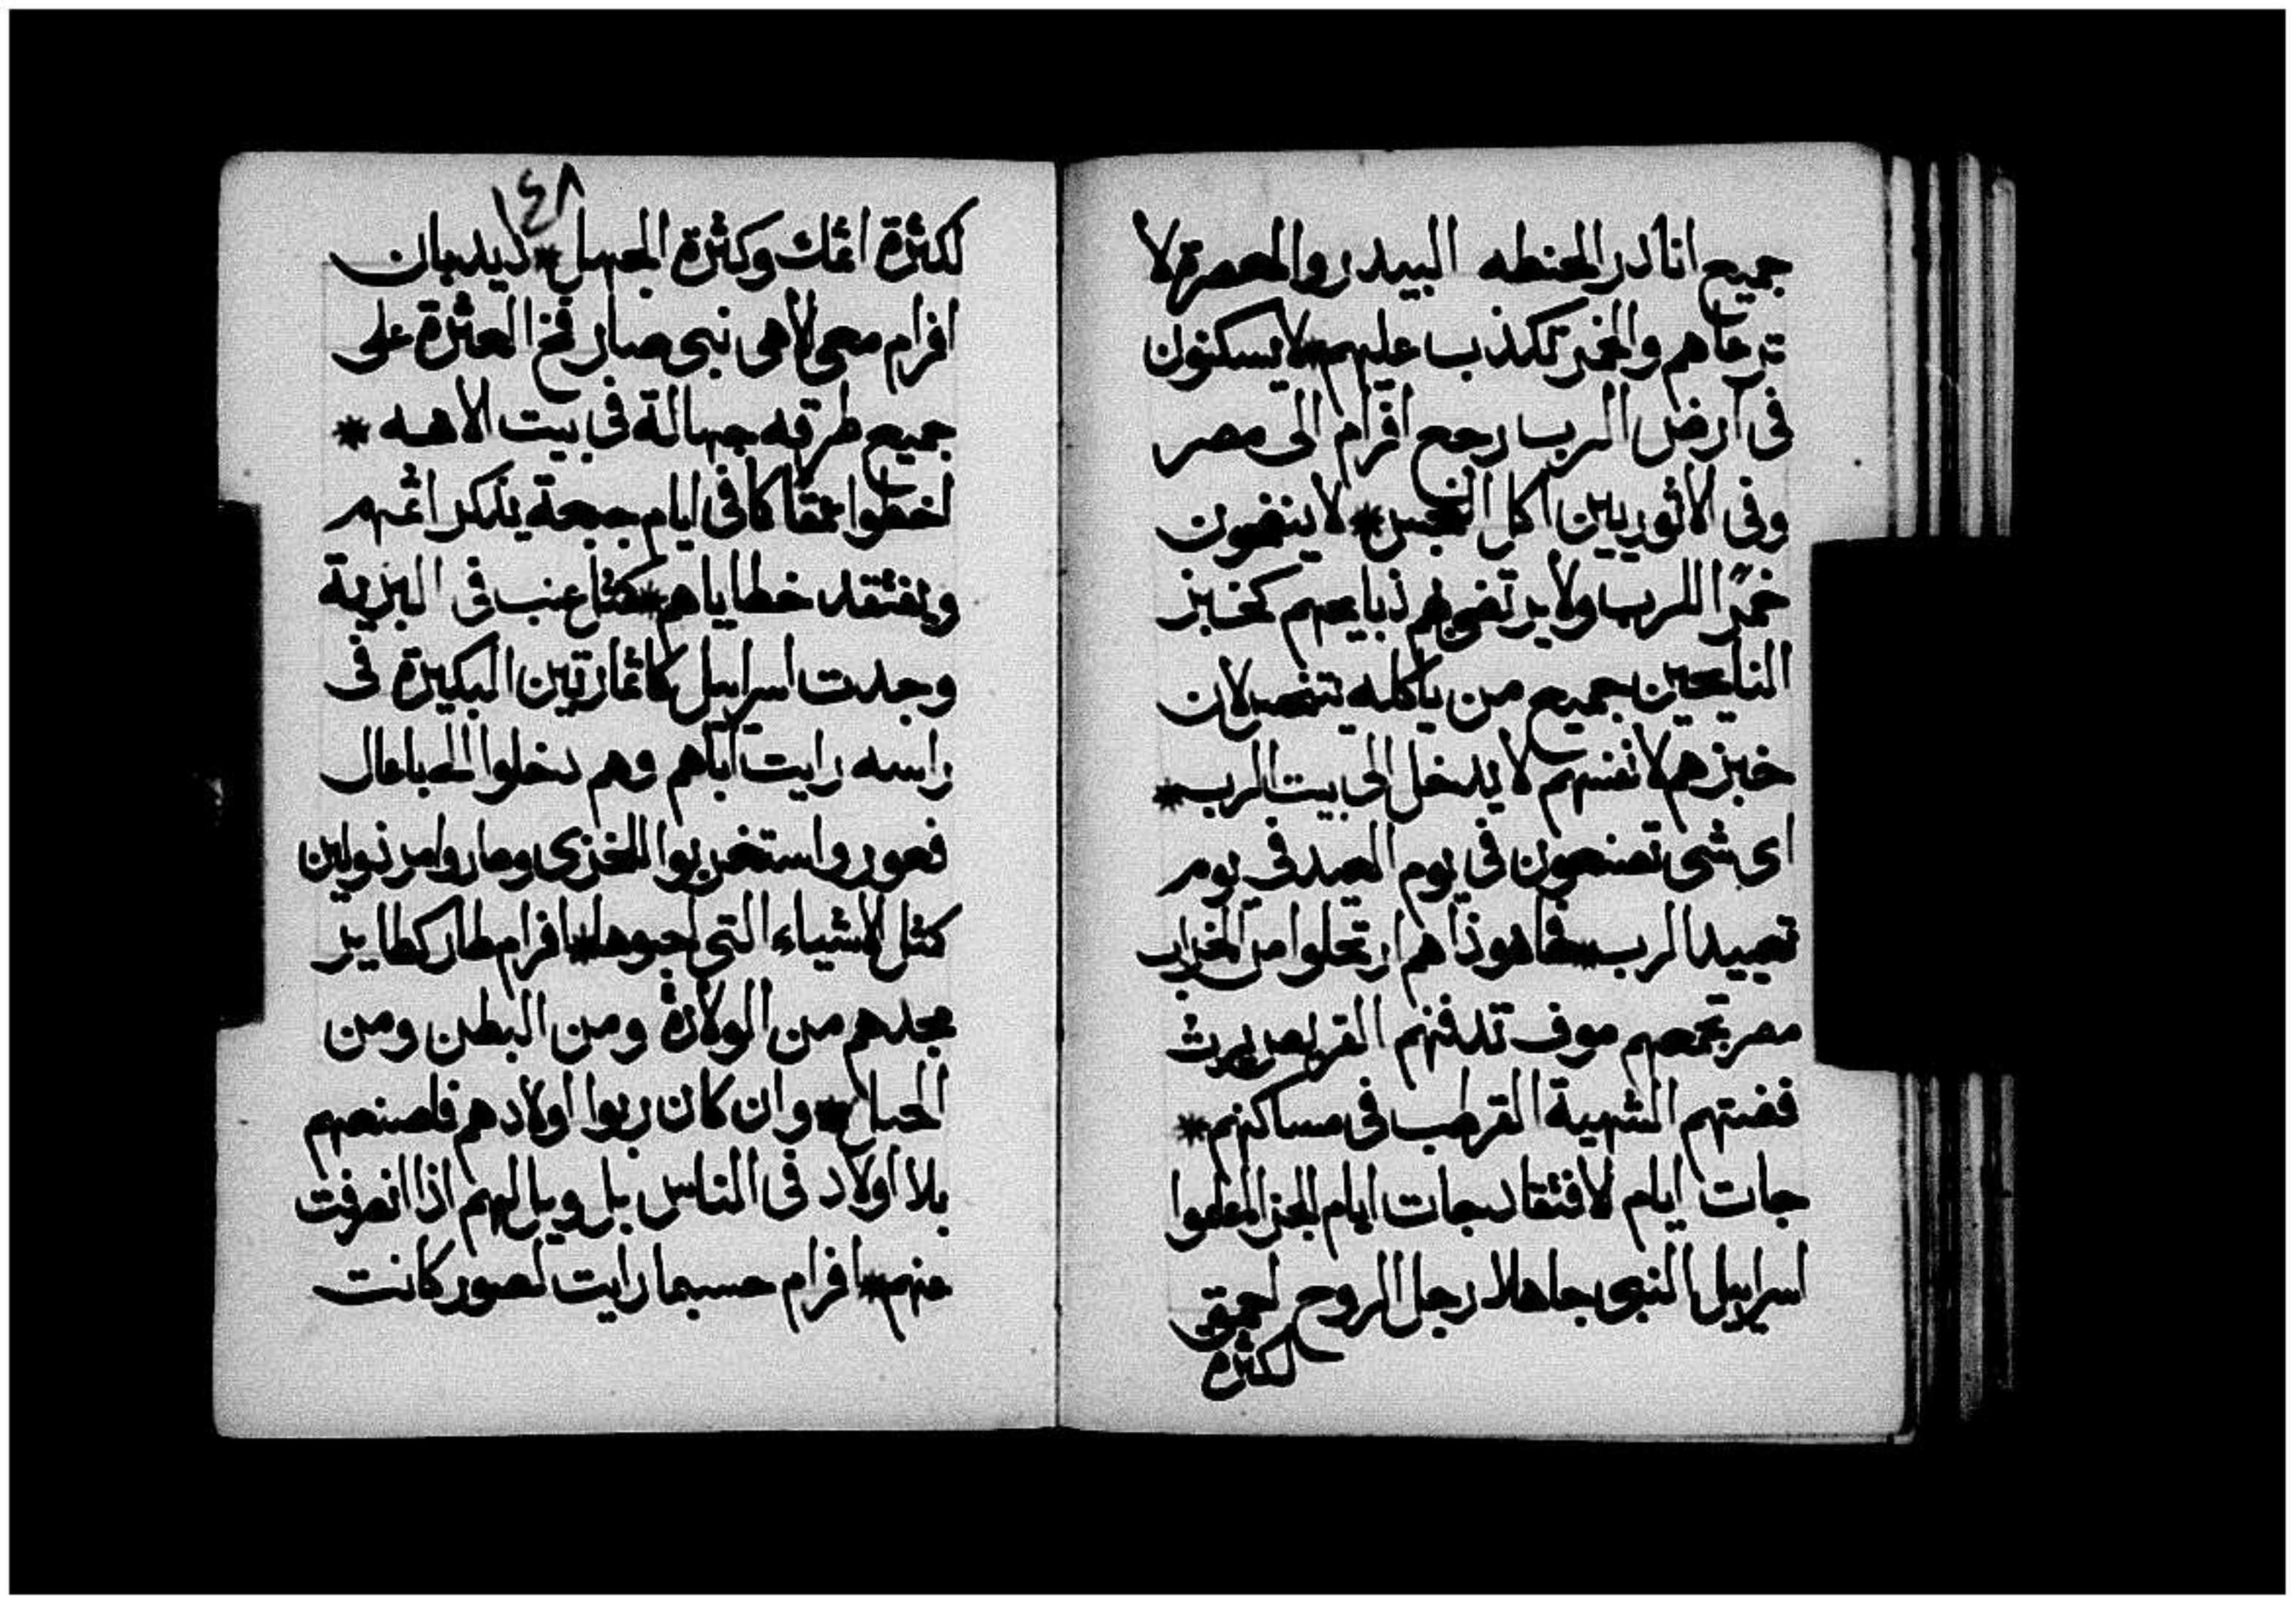 جميع انادر الحنطه البيدر والمعصرة لا
ترعاهم والخمر تكذب عليهم لا يسكنون
فى ارض الرب رجع افرام الى مصر
وفى الاثوريين اكل النجس * لا ينضحون
خمرًا للرب ولا يرتضى بهم ذبايحهم كخبز
النايحين جميع من ياكله يتنجس لان
خبزهم لانفسهم لا يدخل الى بيت الرب *
اى شى تصنعون فى يوم العيد فى يوم
تعييد الرب * فها هوذا هم ارتحلوا من الخراب
مصر تجمعهم موف تدفنهم القريص يرث
فضتهم الشهية القرطب فى مساكنهم *
جات ايام الافتقاد جات ايام الجزا اعلموا
اسراييل النبى جاهلا رجل الروح احمق
لكثرة
١٤٨
لكثرة اثمك وكثرة الجهل * ليدبان
افرام معى الاهى نبى صار فخ العثرة على
جميع طرقه جهالة فى بيت الاهه *
اخطوا عمقا كما فى ايام جبعة يذكر اثمهم
ويفتقد خطاياهم * كمثل عنب فى البرية
وجدت اسراييل كاثمار تين البكيرة فى
راسه رايت اباهم وهم دخلوا الى باعال
فعور واستغربوا للخزى وصاروا مرذولين
كمثل الاشياء التى احبوها * افرام طار كطاير
مجدهم من الولادة ومن البطن ومن
الحبل * وان كان ربوا اولادهم فاصنعهم
بلا اولاد فى الناس بل ويل لهم اذا انصرفت
منهم * افرام حسبما رايت لصور كانت